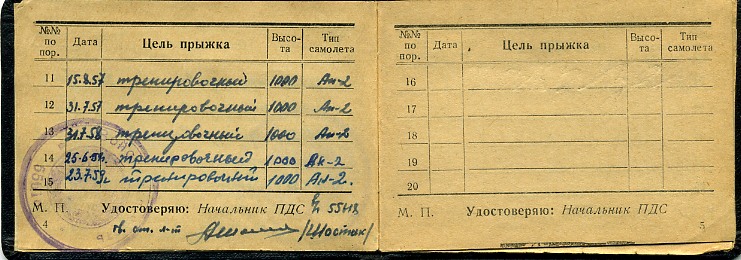 №№ по пор. Дата Цель прыжка Высота Тип самолета
11 15.8.57 тренировочный 1000 Ан-2
12 31.7.57 тренировочный 1000 Ан-2
13 31.7.58 тренировочный 1000 Ан-2
14 25.6.59г. тренировочный 1000 Ан-2
15 23.7.59г. тренировочный 1000 Ан-2.
М. П. Удостоверяю: Начальник ПДС
4 гв. ст. л-т /Шостак/
№№ по пор. Дата Цель прыжка Высота Тип самолета
16
17
18
19
20
М. П. Удостоверяю: Начальник ПДС
5